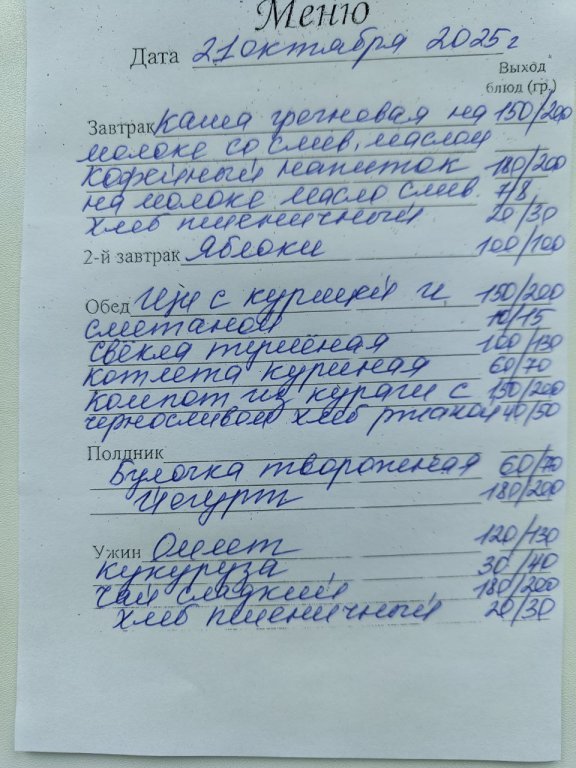 Меню
Дата 21 октября 2025 г
Выход
блюд (гр.)
Завтрак каша гречневая на 150/200
молоке со слив. маслом
Кофейный напиток 180/200
на молоке масло слив 7/8
хлеб пшеничный 20/30
2-й завтрак Яблоки 100/100
Обед Щи с курицей и 150/200
сметаной 10/15
свёкла тушёная 100/130
котлета куриная 60/70
компот из кураги с 150/200
черносливом хлеб ржаной 40/50
Полдник
Булочка творожная 60/70
Йогурт 180/200
Ужин Омлет 120/130
кукуруза 30/40
чай сладкий 180/200
хлеб пшеничный 20/30